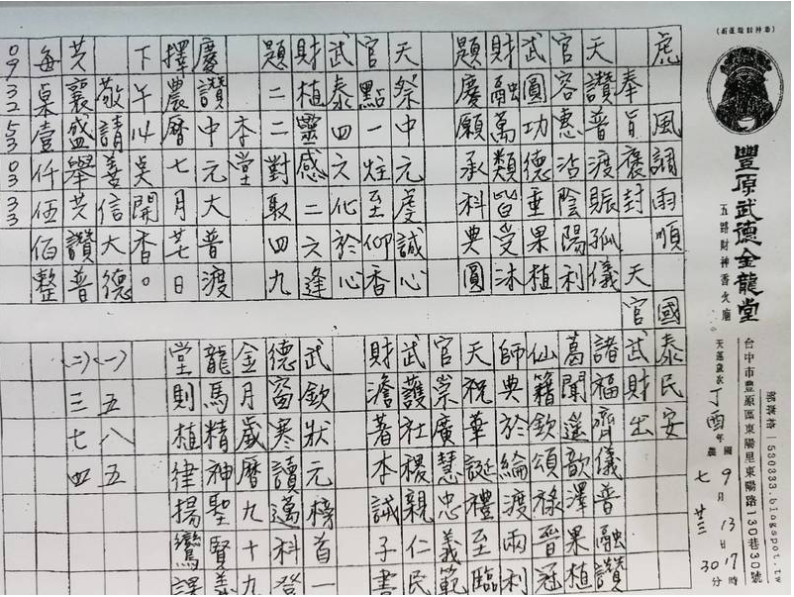 部落格|530333.blogspot.tw
台中市豐原區東陽里東陽路130巷30號
豐原武德金龍堂
五路財神香火廟
天運歲次丁酉年 國9月13日17時
農七 廿三 30分
虎 風調雨順 國泰民安
奉旨褒封 天官武財出
天讚普渡賑孤儀 諸福齊儀普融讚
官容惠沾陰陽利 葛聞遥歆澤果植
武圓功德垂果植 仙籍欽頌祿晉冠
財融萬類皆受沐 師典於綸渡兩利
題慶願承科典圓 天稅華誕禮至臨
官崇廣慧忠義範
天祭中元虔誠心 武護社稷親仁民
官點一炷至仰香 財澹著本誠子書
武泰四六化於心
財植靈感二六逢 武欽狀元榜首一
題二二對聚四九 德窗寒讀邁科登
李堂 金月歲曆九十九
慶讚中元大普渡 龍馬精神聖賢義
擇農曆七月廿七日 堂則植律揚鸞課
下午以吳開香。
敬請善信大德 (一)五八五
共襄盛舉共讚普 (二)三七四
每桌壹仟伍佰整
0932530333